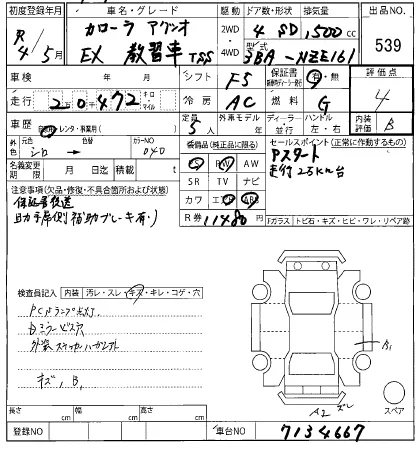 初度登録年月 車名・グレード 駆動 ドア数・形状 排気量 出品NO.
R4/5月 カローラ アクシオ EX 教習車 TSS 2WD 4WD 4 SD 1,500cc 539
型式 3BA-NZE161
車検 年 月 シフト F5 保証書 有・無 評価点
走行 20,472 キロ マイル 冷房 AC 燃料 G 4
車歴 レンタ・事業用 定員 5 外車モデル 年 ディーラー 並行 ハンドル 左・右 内装評価 B
外色 元色 シロ 色替 カラーNO 040 装備品(純正品に限る) セールスポイント(正常に作動するもの)
名義変更期限 月 日迄 積載 t PS PW AW Pスタート
注意事項(欠品・修復・不具合箇所および状態) SR TV ナビ
保証書後送 カワ エアB ABS
助手席側補助ブレーキ有り R券 11480 円 Fガラス トビ石・キズ・ヒビ・ワレ・リペア跡
検査員記入 内装 汚レ・スレ・キズ・キレ・コゲ・穴
キズ, B,
A2
スペア
長さ cm 幅 cm 高さ cm
登録NO 車台NO 7134667